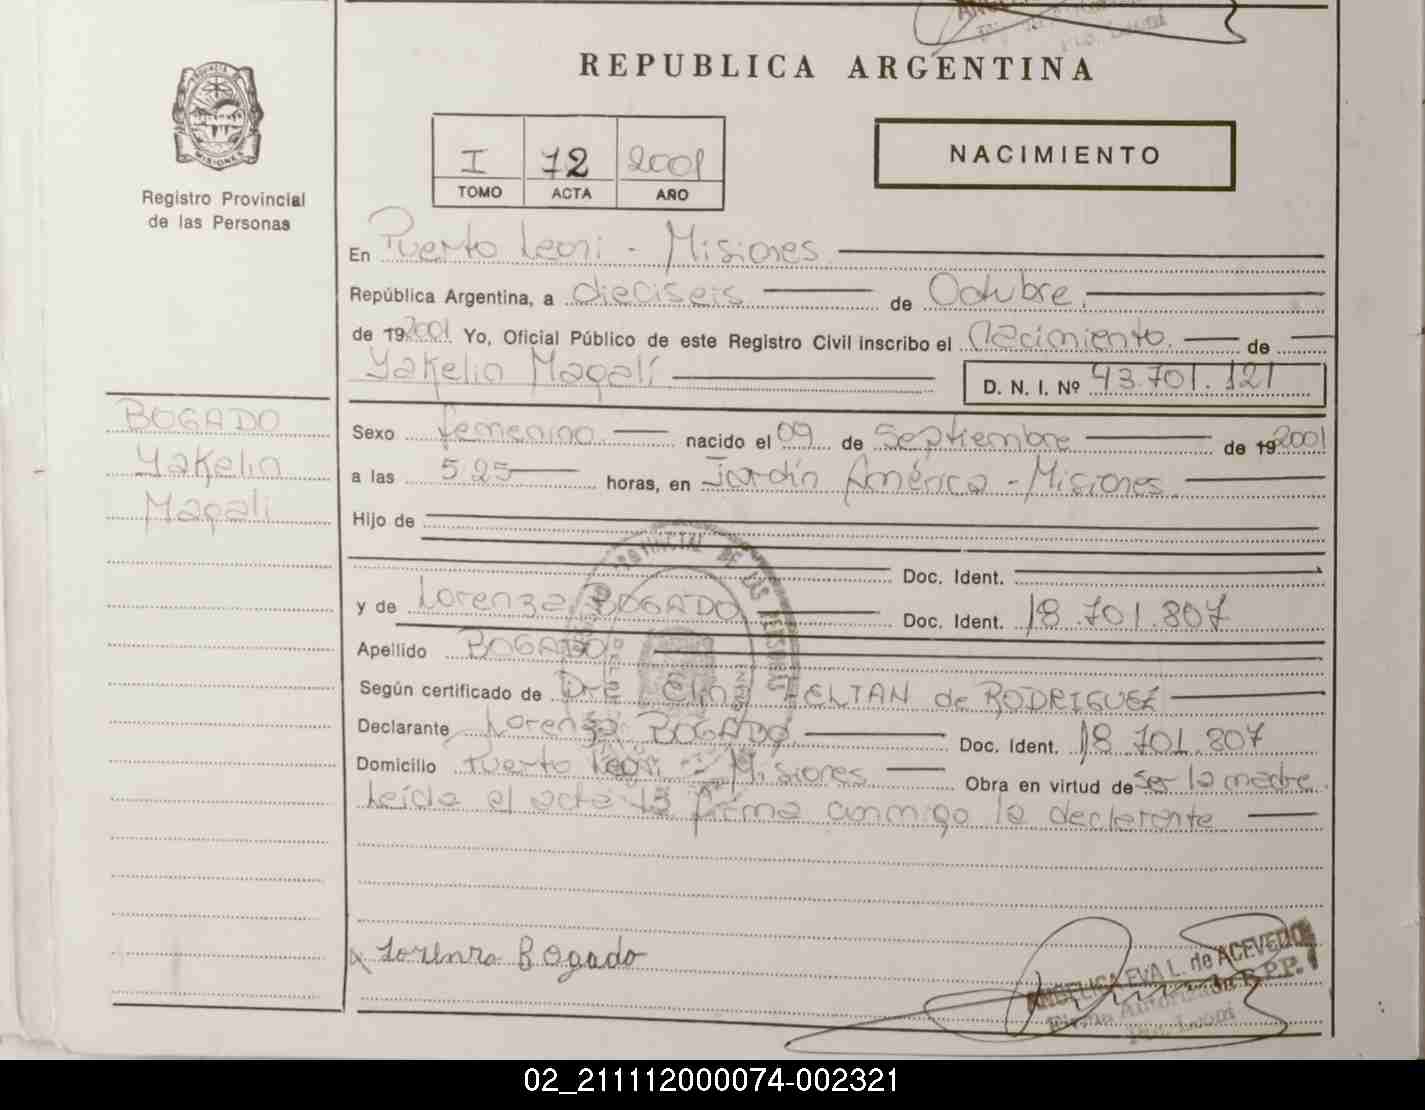 REPUBLICA ARGENTINA
PROVINCIA
MISIONES
Registro Provincial
de las Personas
I 72 2001
TOMO ACTA AÑO
NACIMIENTO
En Puerto Leoni - Misiones
República Argentina, a dieciseis de Octubre
de 19 2001 Yo, Oficial Público de este Registro Civil inscribo el Nacimiento de
Yakelin Magalí D. N. I. Nº 43.701.121
BOGADO
Yakelin
Magali
Sexo femenino nacido el 09 de Septiembre de 19 2001
a las 5:25 horas, en Jardín América - Misiones
Hijo de
Doc. Ident.
y de Lorenza BOGADO Doc. Ident. 18.701.807
Apellido BOGADO
Según certificado de Dra Elin de RODRIGUEZ
Declarante Lorenza BOGADO Doc. Ident. 18.701.807
Domicilio Puerto Leoni - Misiones Obra en virtud de ser la madre
Leída el acta la firma conmigo la declarante
PROVINCIAL DE LAS PERSONAS
Lorenza Bogado
ANGELICA EVA L. de ACEVEDO
Firma Autorizada R.P.P.
Pto. Leoni
02_211112000074-002321